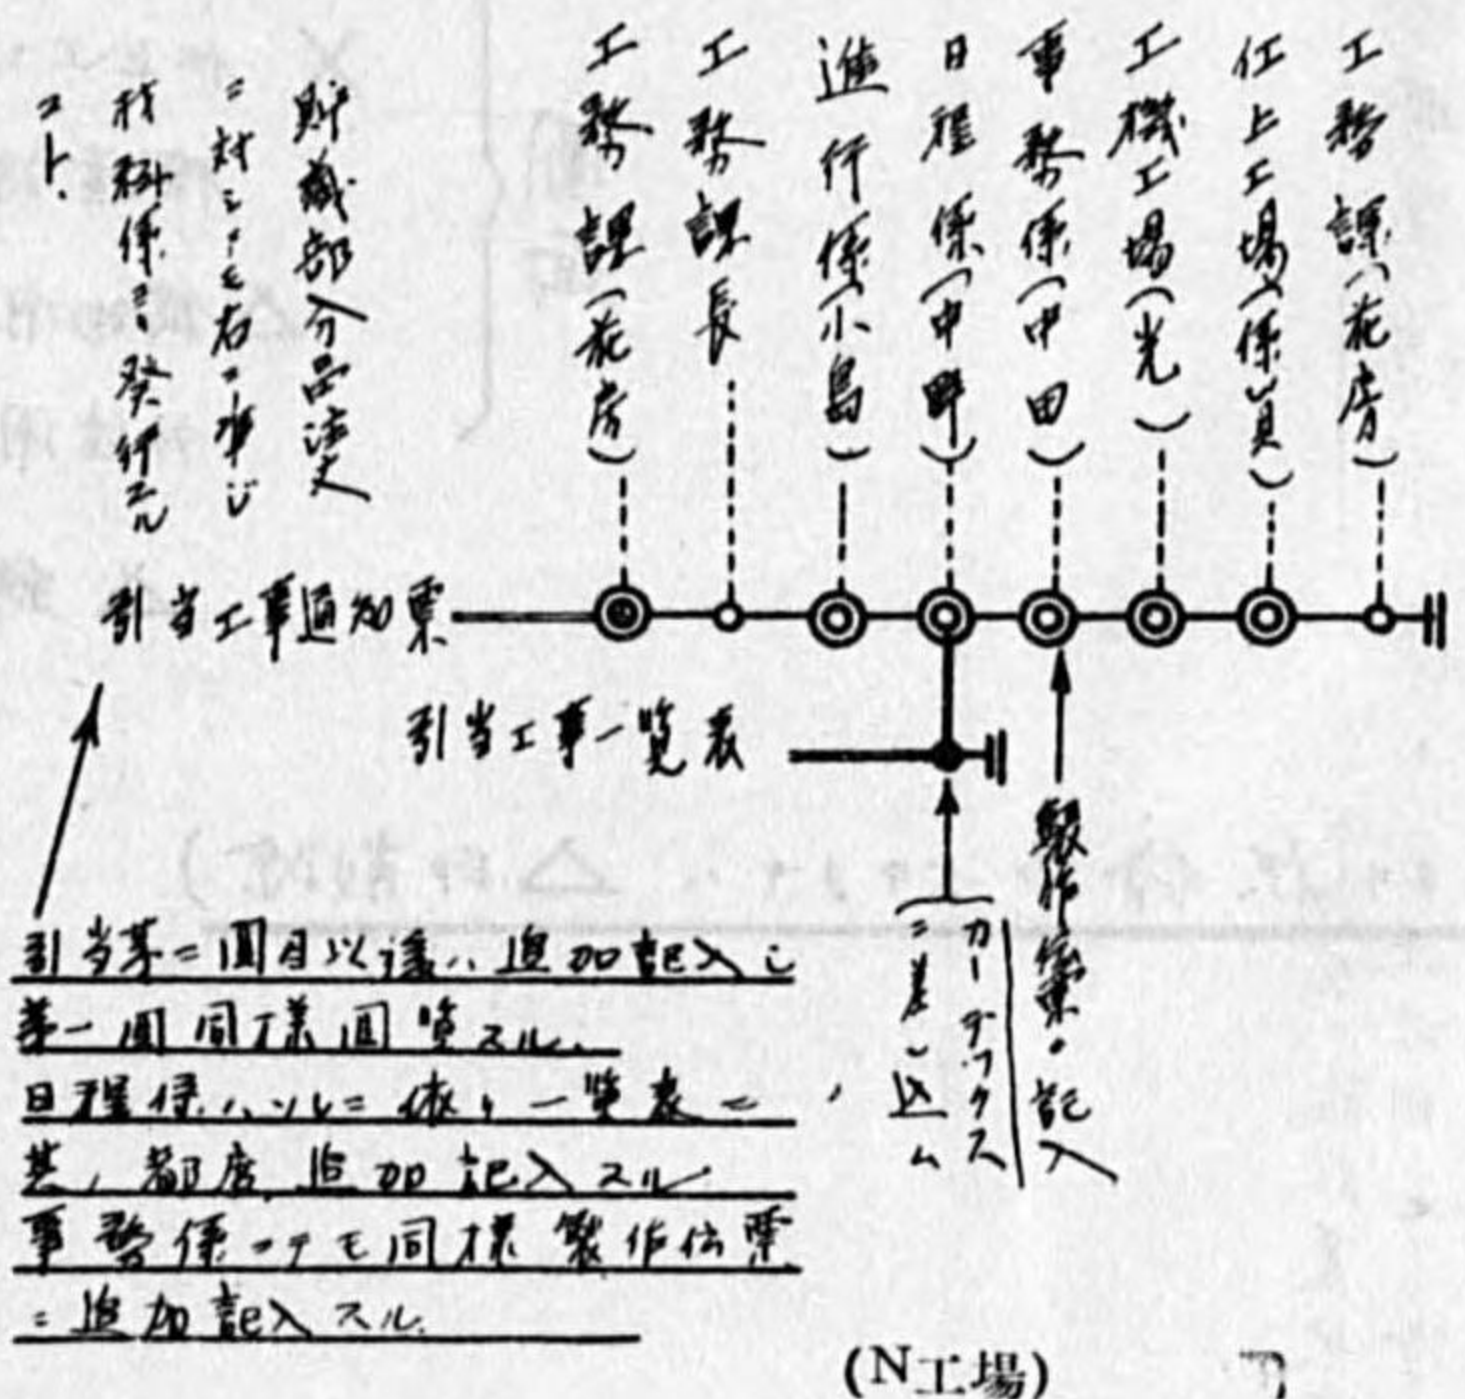 工務課(花房)
仕上工場(係員)
工機工場(光)
事務係(中田)
日程係(中野)
進行係(小島)
工務課長
工務課(花房)
貯蔵部分品注文
ニ対シテモ右ニ準ジ
材料係ヨリ発行スル
コト.
引当工事通知票
引当工事一覧表
製作伝票ニ記入
カーデックス
ニ差し込ム
引当第二回目以後ハ追加記入シ
第一回同様回覧スル.
日程係ハソレニ依リ一覧表ニ
其ノ都度追加記入スル
事務係ニテモ同様製作伝票
ニ追加記入スル.
(N工場)